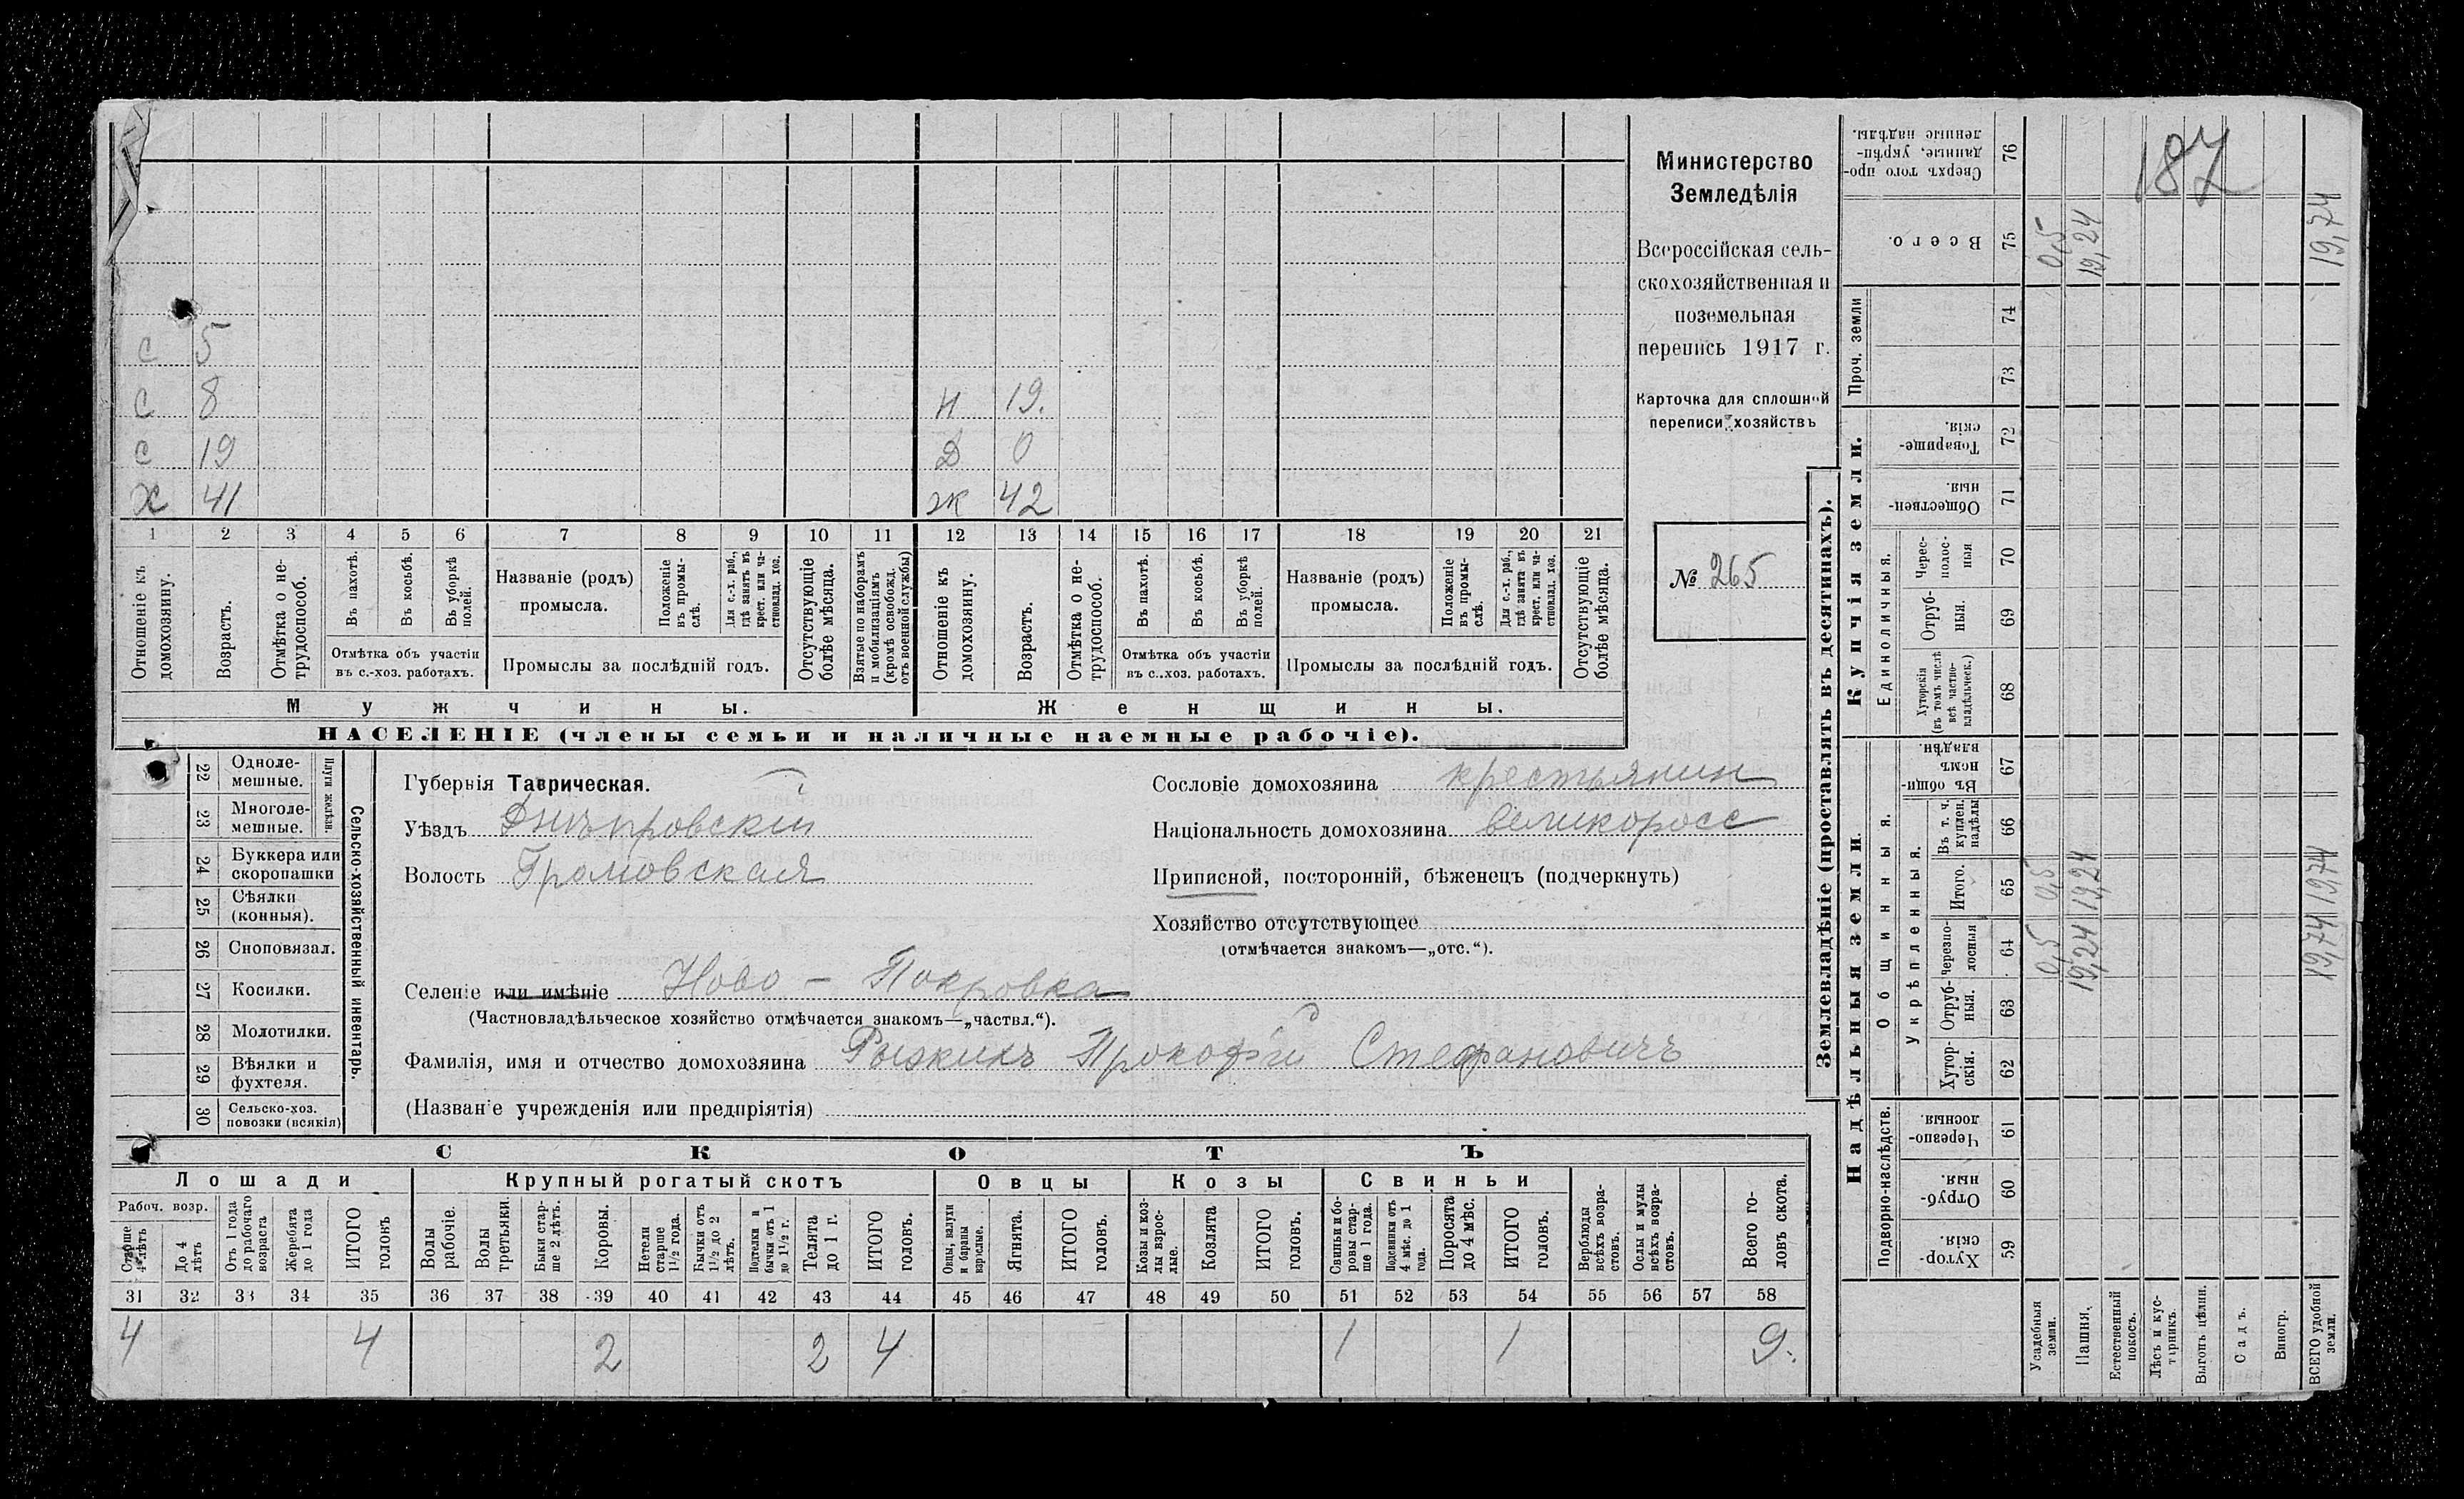 с 5
с 8 н 19.
с 19 д 0
х 41 ж 42
1 2 3 4 5 6 7 8 9 10 11 12 13 14 15 16 17 18 19 20 21
Отношеніе къ домохозяину.
Возрастъ.
Отмѣтка о не-трудоспособ.
Въ пахотѣ.
Въ косьбѣ.
Въ уборкѣ полей.
Отмѣтка объ участіи
въ с.-хоз. работахъ.
Названіе (родъ)
промысла.
Положеніе въ промы-слѣ.
Для с.-х. раб., гдѣ занятъ въ крест. или ча-стновлад. хоз.
Промыслы за послѣдній годъ.
Отсутствующіе болѣе мѣсяца.
Взятые по наборамъ и мобилизаціямъ (кромѣ освобожд. отъ военной службы)
Отношеніе къ домохозяину.
Возрастъ.
Отмѣтка о не-трудоспособ.
Въ пахотѣ.
Въ косьбѣ.
Въ уборкѣ полей.
Отмѣтка объ участіи
въ с..хоз. работахъ.
Названіе (родъ)
промысла.
Положеніе въ промы-слѣ.
Для с.-х. раб., гдѣ занята въ крест. или ча-стновлад. хоз.
Промыслы за послѣдній годъ.
Отсутствующіе болѣе мѣсяца.
Мужчины. Женщины.
НАСЕЛЕНІЕ (члены семьи и наличные наемные рабочіе).
Министерство
Земледѣлія
Всероссійская сель-
скохозяйственная и
поземельная
перепись 1917 г.
Карточка для сплошной
переписи хозяйствъ
№ 265
22 Одноле-мешные.
23 Многоле-мешные.
Плуги желѣзн.
24 Буккера или скоропашки
25 Сѣялки (конныя).
26 Сноповязал.
27 Косилки.
28 Молотилки.
29 Вѣялки и фухтеля.
30 Сельско-хоз. повозки (всякія)
Сельско-хозяйственный инвентарь.
Губернія Таврическая.
Уѣздъ Днѣпровскій
Волость Громовская
Сословіе домохозяина крестьянин
Національность домохозяина великоросс
Приписной, посторонній, бѣженецъ (подчеркнуть)
Хозяйство отсутствующее
(отмѣчается знакомъ—„отс.“).
Селеніе или имѣніе Ново - Покровка
(Частновладѣльческое хозяйство отмѣчается знакомъ—„частвл.“).
Фамилія, имя и отчество домохозяина Рыжихъ Прокофій Стефановичъ
(Названіе учрежденія или предпріятія)
СКОТЪ
Лошади Крупный рогатый скотъ Овцы Козы Свиньи
Рабоч. возр.
Старше 4 лѣтъ
До 4 лѣтъ
Отъ 1 года до рабочаго возраста
Жеребята до 1 года
ИТОГО головъ
Волы рабочіе.
Волы третьяки.
Быки стар-ше 2 лѣтъ.
Коровы.
Нетели старше 1½ года.
Бычки отъ 1½ до 2 лѣтъ.
Подтелки и бычки отъ 1 до 1½ г.
Телята до 1 г.
ИТОГО головъ.
Овцы, валухи и бараны взрослые.
Ягнята.
ИТОГО головъ.
Козы и коз-лы взрос-лые.
Козлята
ИТОГО головъ.
Свиньи и бо-ровы стар-ше 1 года.
Подсвинки отъ 4 мѣс. до 1 года.
Поросята до 4 мѣс.
ИТОГО головъ.
Верблюды всѣхъ возра-стовъ.
Ослы и мулы всѣхъ возра-стовъ.
Всего го-ловъ скота.
31 32 33 34 35 36 37 38 39 40 41 42 43 44 45 46 47 48 49 50 51 52 53 54 55 56 57 58
4 4 2 2 4 1 1 9.
Землевладѣніе (проставлять въ десятинахъ).
Надѣльныя земли. Купчія земли. Проч. земли
Подворно-наслѣдств.
Общинныя.
Укрѣпленныя.
Единоличныя.
Хутор-скія. 59
Отруб-ныя. 60
Черезпо-лосныя 61
Хутор-скія. 62
Отруб-ныя. 63
Черезпо-лосныя 64
Итого. 65
Въ т. ч. куплен. надѣлы 66
Въ общи-номъ владѣн. 67
Хуторскія (въ томъ числѣ всѣ частно-владѣльческ.) 68
Отруб-ныя. 69
Черес-полос-ныя 70
Обществен-ныя. 71
Товарище-скія. 72
73
74
Всего. 75
Сверхъ того про-данные, укрѣп-ленные надѣлы. 76
187
Усадебныя земли. 0,5 0,5 0,5
Пашня. 19,24 19,24 19,24
Естественный покосъ.
Лѣсъ и кус-тарникъ.
Выгонъ цѣлин.
Садъ.
Виногр.
ВСЕГО удобной земли. 19,74 19,74 19,74